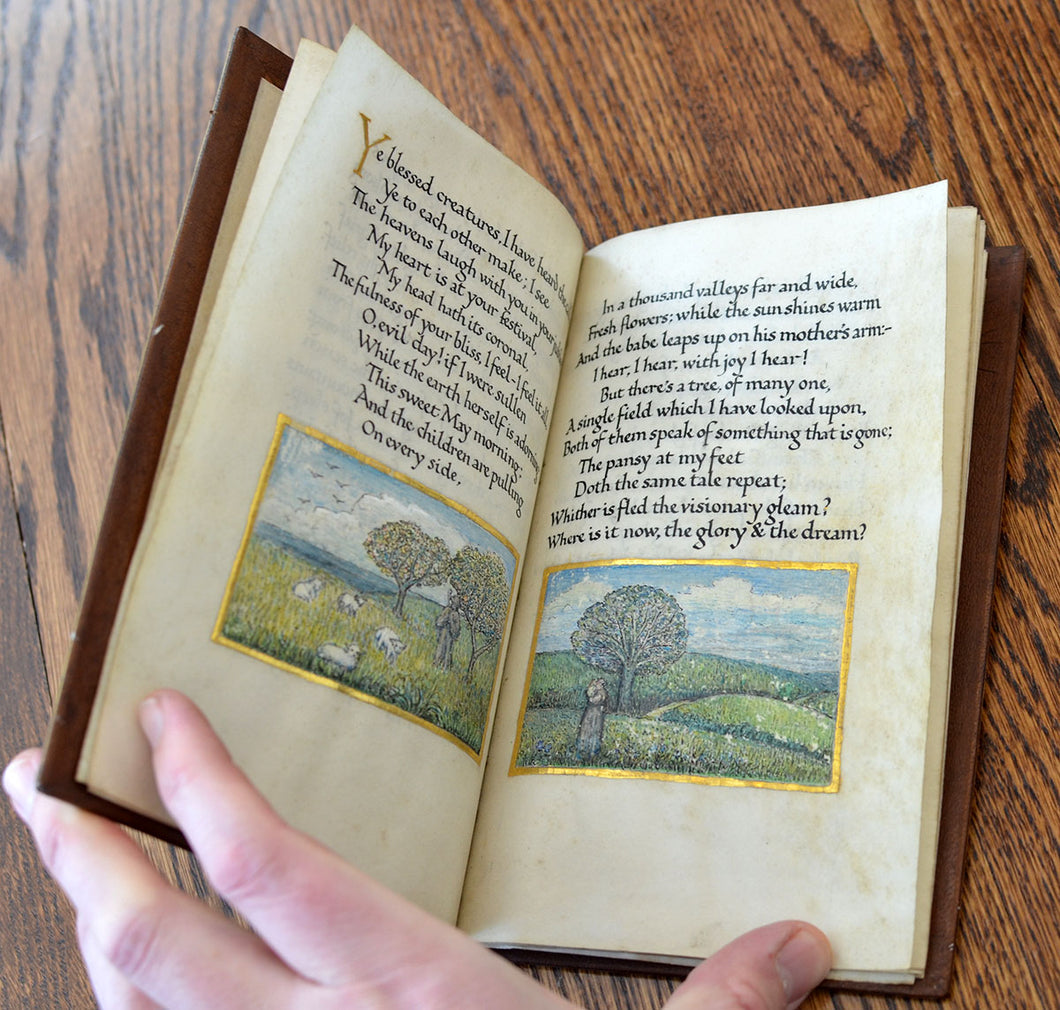 Ye blessed creatures, I have heard the
Ye to each other make; I see
The heavens laugh with you in your
My heart is at your festival,
My head hath its coronal,
The fulness of your bliss, I feel-I feel it all.
O, evil day! if I were sullen
While the earth herself is adorning
This sweet May morning;
And the children are pulling
On every side,
In a thousand valleys far and wide,
Fresh flowers; while the sun shines warm
And the babe leaps up on his mother's arm:-
I hear, I hear, with joy I hear!
But there's a tree, of many one,
A single field which I have looked upon,
Both of them speak of something that is gone;
The pansy at my feet
Doth the same tale repeat;
Whither is fled the visionary gleam?
Where is it now, the glory & the dream?